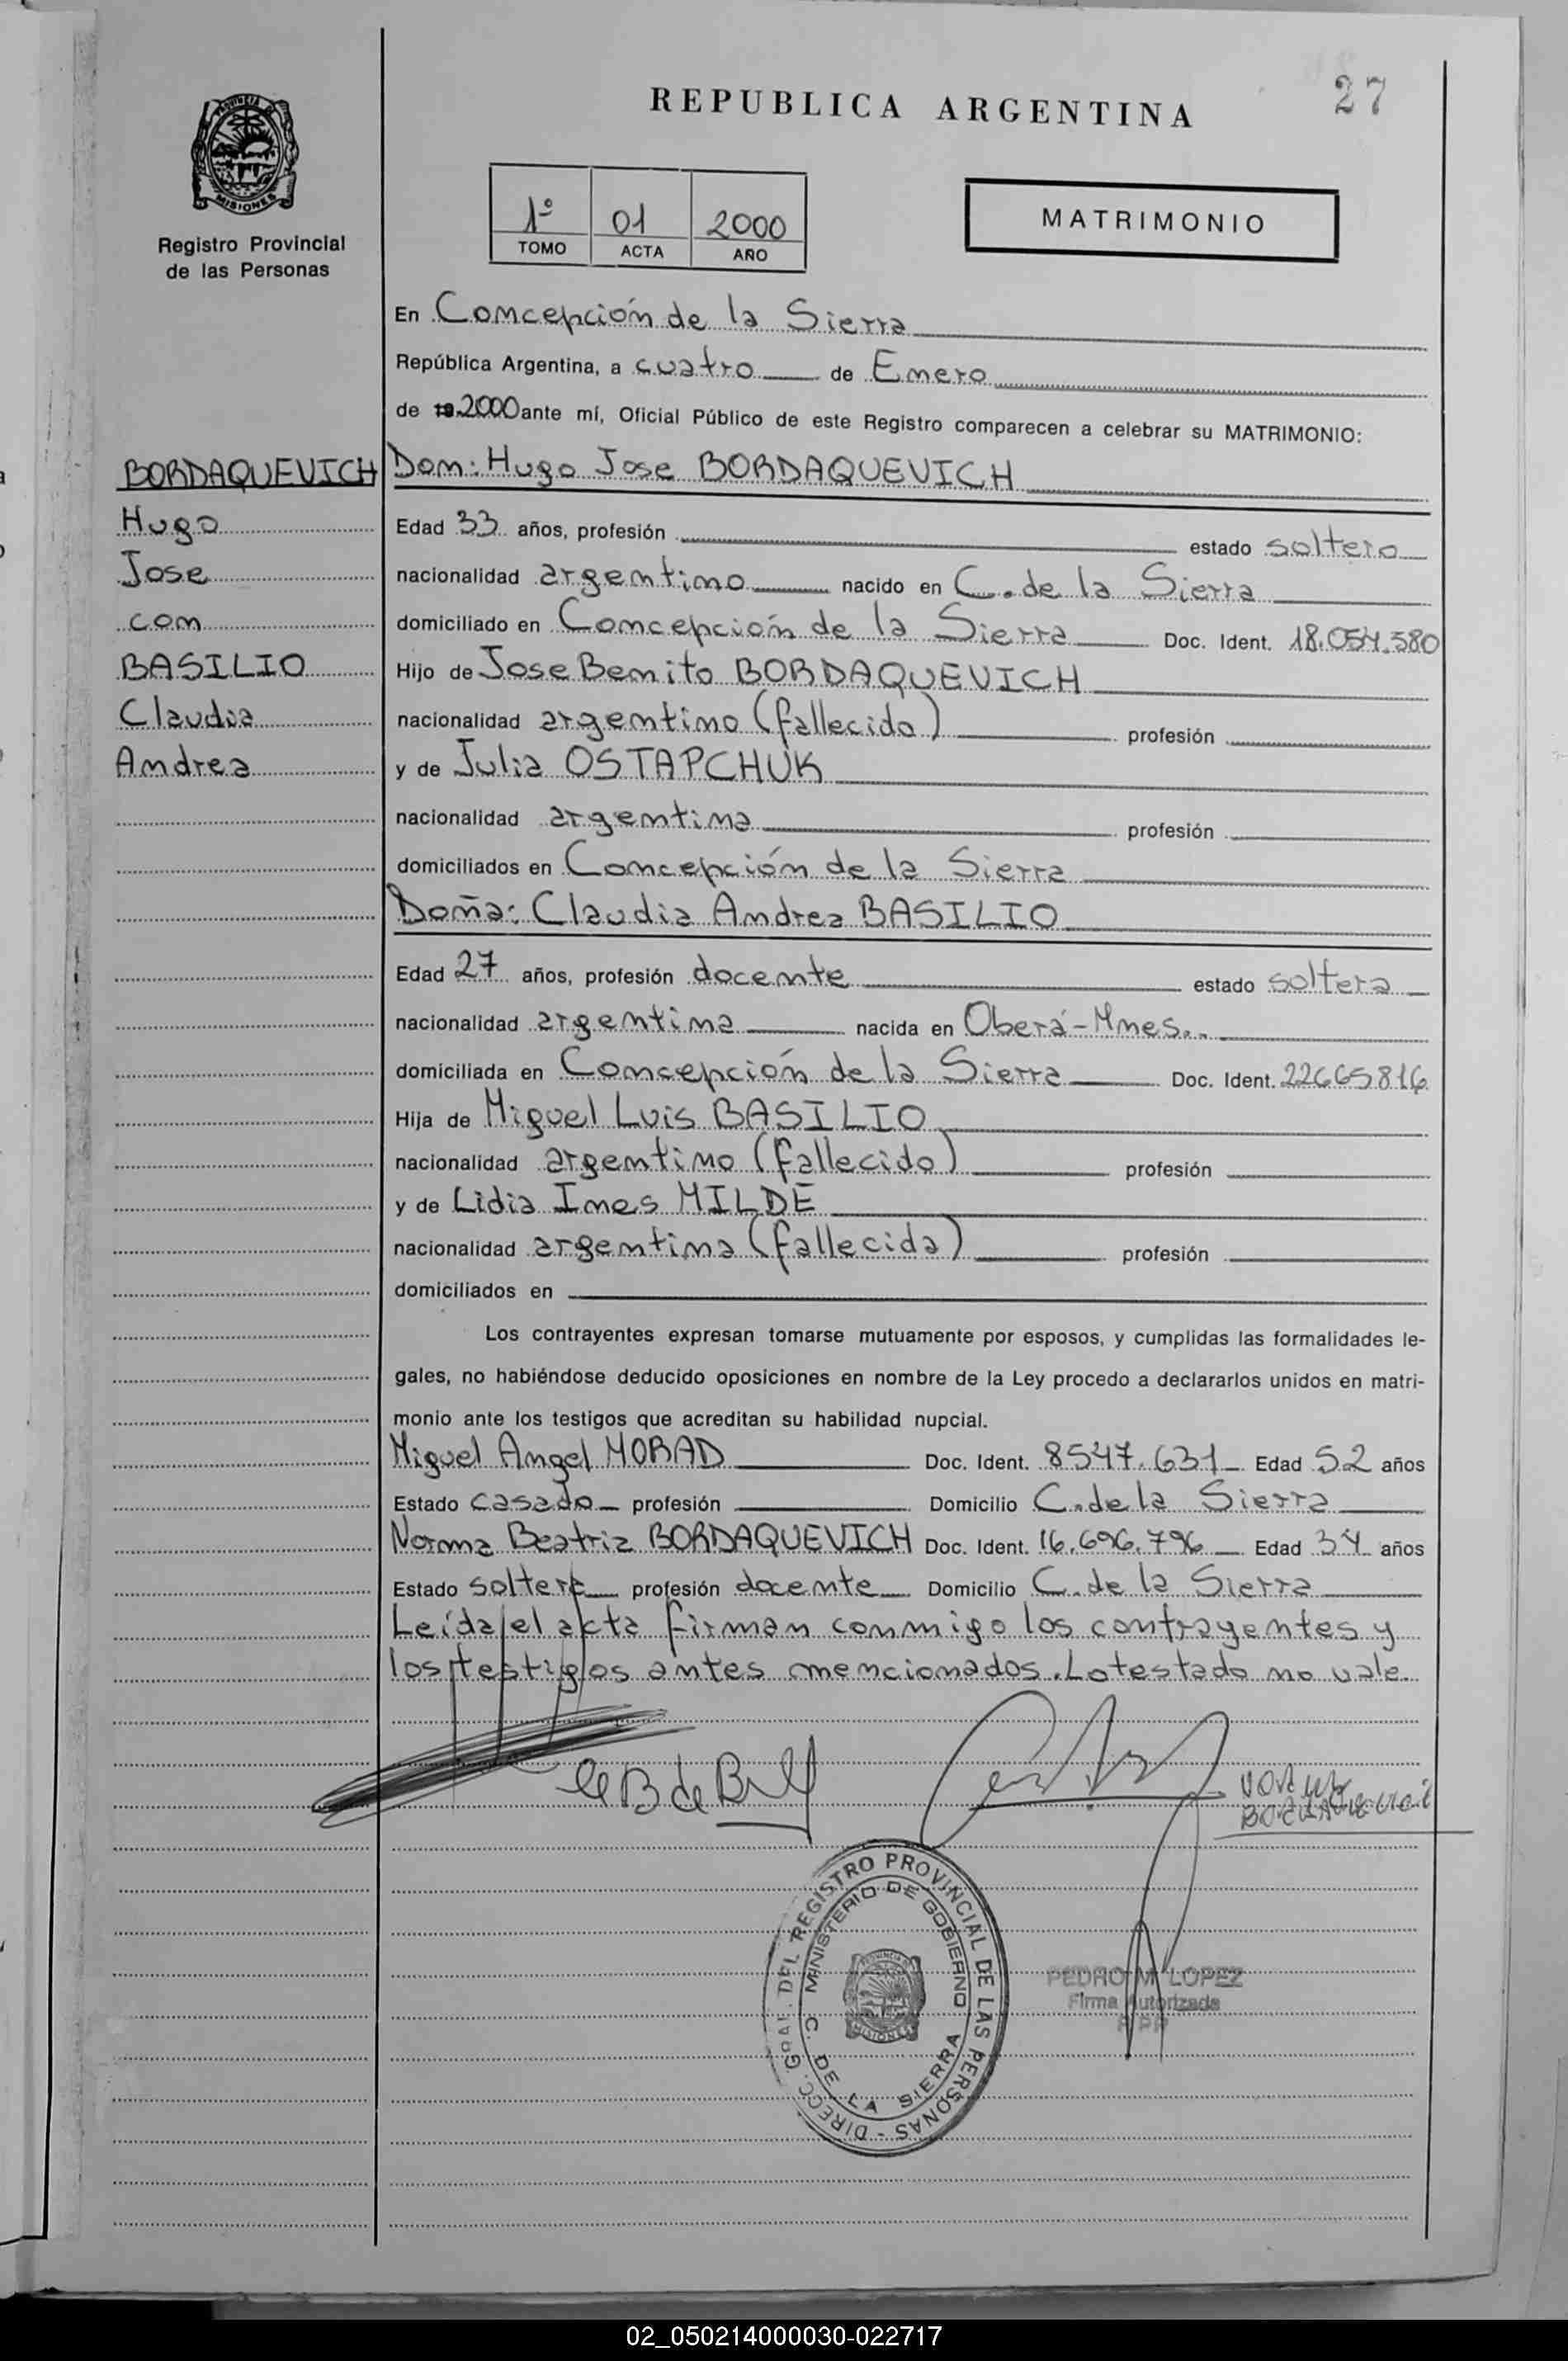 27
REPUBLICA ARGENTINA
MISIONES
Registro Provincial
de las Personas
1º 01 2000
TOMO ACTA AÑO
MATRIMONIO
En Concepción de la Sierra
República Argentina, a cuatro de Enero
de 19 2000 ante mí, Oficial Público de este Registro comparecen a celebrar su MATRIMONIO:
BORDAQUEVICH
Hugo
Jose
con
BASILIO
Claudia
Andrea
Don: Hugo Jose BORDAQUEVICH
Edad 33 años, profesión estado soltero
nacionalidad argentino nacido en C. de la Sierra
domiciliado en Concepción de la Sierra Doc. Ident. 18.054.580
Hijo de Jose Benito BORDAQUEVICH
nacionalidad argentino (fallecido) profesión
y de Julia OSTAPCHUK
nacionalidad argentina profesión
domiciliados en Concepción de la Sierra
Doña: Claudia Andrea BASILIO
Edad 27 años, profesión docente estado soltera
nacionalidad argentina nacida en Oberá-Mnes..
domiciliada en Concepción de la Sierra Doc. Ident. 22665816
Hija de Miguel Luis BASILIO
nacionalidad argentino (fallecido) profesión
y de Lidia Ines MILDE
nacionalidad argentina (fallecida) profesión
domiciliados en
Los contrayentes expresan tomarse mutuamente por esposos, y cumplidas las formalidades le-
gales, no habiéndose deducido oposiciones en nombre de la Ley procedo a declararlos unidos en matri-
monio ante los testigos que acreditan su habilidad nupcial.
Miguel Angel MORAD Doc. Ident. 8547.631 Edad 52 años
Estado casado profesión Domicilio C. de la Sierra
Norma Beatriz BORDAQUEVICH Doc. Ident. 16.696.796 Edad 34 años
Estado soltera profesión docente Domicilio C. de la Sierra
Leída el acta firman conmigo los contrayentes y
los testigos antes mencionados. Lo testado no vale.
DIRECC. GRAL. DEL REGISTRO PROVINCIAL DE LAS PERSONAS -
MINISTERIO DE GOBIERNO
C. DE LA SIERRA
MISIONES
PEDRO M. LOPEZ
Firma Autorizada
02_050214000030-022717